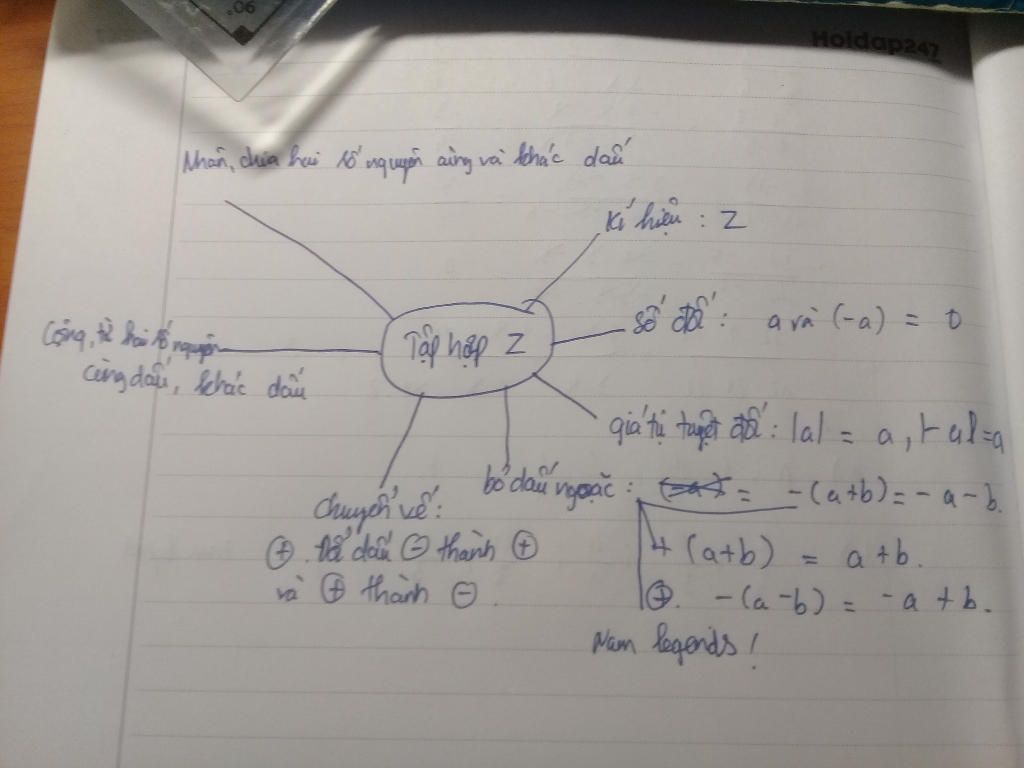 .06
Hoidap247
Nhân, chia hai số nguyên cùng và khác dấu
Kí hiệu : Z
Số đối : a và (-a) = 0
Tập hợp Z
Cộng, trừ hai số nguyên
cùng dấu, khác dấu
giá trị tuyệt đối : |a| = a, |-a|=a
bỏ dấu ngoặc : = -(a+b) = -a-b.
+ (a+b) = a+b.
+. -(a-b) = -a+b.
chuyển vế :
+ . Đổi dấu - thành +
và + thành - .
Nam legends !